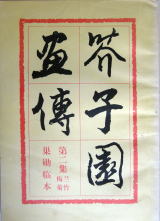 芥子園
畫傳
第二集 蘭竹
梅菊
巢勋临本